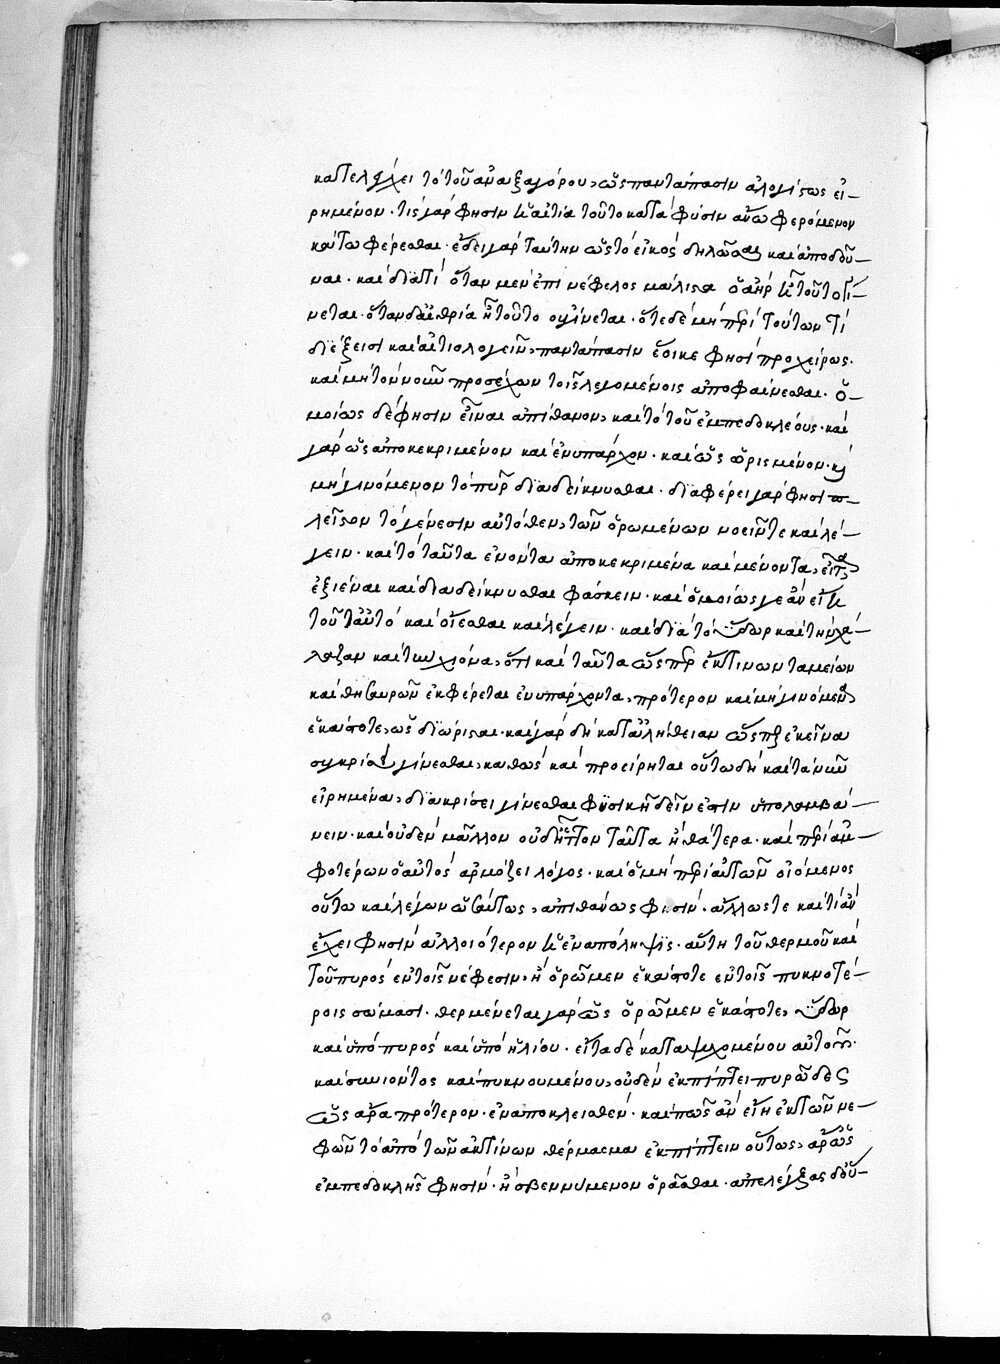 κατελέγχει τὸ τοῦ ἀναξαγόρου, ὡς πανταπασιν ἀλογίστως εἰ-
ρημένον· τίς γάρ φησιν ἡ αἰτία τοῦτο κατὰ φύσιν ἄνω φερόμενον
κάτω φέρεσθαι· ἔδει γὰρ ταύτην ὡς τὸ εἰκὸς δηλῶσαι καὶ ἀποδοῦ-
ναι· καὶ διατί ὅταν μὲν ἐπινέφελος μάλιστα ὁ ἀὴρ ᾖ τοῦτο γί-
νεται· ὅταν δ' αἰθρία ᾖ τοῦτο οὐ γίνεται· ὅτε δὲ μὴ περὶ τούτων τί
διέξεισι καὶ αἰτιολογεῖν, πανταπασιν ἔοικε φησὶ προχείρως·
καὶ μὴ τὸν νοῦν προσέχων τοῖς λεγομένοις ἀποφαίνεσθαι· ὁ-
μοίως δέ φησιν εἶναι ἀπίθανον, καὶ τὸ τοῦ ἐμπεδοκλέους· καὶ
γὰρ ὡς ἀποκεκριμένον καὶ ἐνυπάρχον· καὶ ὡς ὡρισμένον· καὶ
μὴ γινόμενον τὸ πῦρ διαδείκνυσθαι· διαφέρει γάρ φησι
πλεῖστον τὸ γένεσιν αὐτόθεν, τῶν ὁρωμένων νοεῖν τε καὶ λέ-
γειν· καὶ τὸ ταῦτα ἐνόντα ἀποκεκριμένα καὶ μένοντα, εἶτα
ἐξιέναι καὶ διαδείκνυσθαι φάσκειν· καὶ ὁμοίως γε ἂν εἴη
τοῦτ' αὐτὸ καὶ οἴεσθαι καὶ λέγειν· καὶ διὰ τὸ ὕδωρ καὶ τὴν χά-
λαζαν καὶ τὴν χιόνα, ὅτι καὶ ταῦτα ὥσπερ ἔκ τινων ταμείων
καὶ θησαυρῶν ἐκφέρεται ἐνυπάρχοντα, πρότερον καὶ μὴ γινόμενα
ἑκάστοτε, ὡς διώρισται· καὶ γὰρ δὴ κατ' ἀλήθειαν ὥσπερ ἐκεῖνα
συγκρίσει γίνεσθαι, καθὼς καὶ προείρηται οὕτω δὴ καὶ τὰ νῦν
εἰρημένα, διακρίσει γίνεσθαι φυσικῇ δεῖν ἐστὶν ὑπολαμβά-
νειν· καὶ οὐδὲν μᾶλλον οὐδ' ἧττον ταῦτα ἢ θάτερα· καὶ περὶ ἀμ-
φοτέρων ὁ αὐτὸς ἁρμόζει λόγος· καὶ ὁ μὴ περὶ αὐτῶν οἰόμενος
οὕτω καὶ λέγων ὡσαύτως, ἀπιθάνως φησίν· ἄλλως τε καὶ τί ἂν
ἔχει φησὶν ἀλλοιότερον ἡ ἐναπόληψις· αὕτη τοῦ θερμοῦ καὶ
τοῦ πυρὸς ἐν τοῖς νέφεσιν, ἢ ὁρῶμεν ἑκάστοτε ἐν τοῖς πυκνοτέ-
ροις σώμασι· θερμαίνεται γὰρ ὡς ὁρῶμεν ἑκάστοτε, ὕδωρ
καὶ ὑπὸ πυρὸς καὶ ὑπὸ ἡλίου· εἶτα δὲ καταψυχομένου αὐτοῦ·
καὶ συνιόντος καὶ πυκνουμένου, οὐδὲν ἐκπίπτει πυρῶδες
ὡς ἄρα πρότερον· ἐναποκλεισθέν· καὶ πῶς ἂν εἴη ἐκ τῶν νε-
φῶν τὸ ἀπὸ τῶν ἀκτίνων θέρμασμα ἐκπίπτειν οὕτως, ἄρ' ὡς
ἐμπεδοκλῆς φησίν· ἢ σβεννύμενον ὁρᾶσθαι· ἀπελέγξας δ' οὖ-